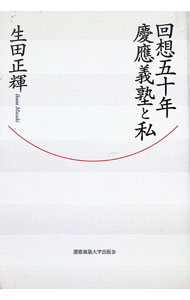 回想五十年
慶應義塾と私
生田正輝
Ikuta Masaki
慶應義塾大学出版会